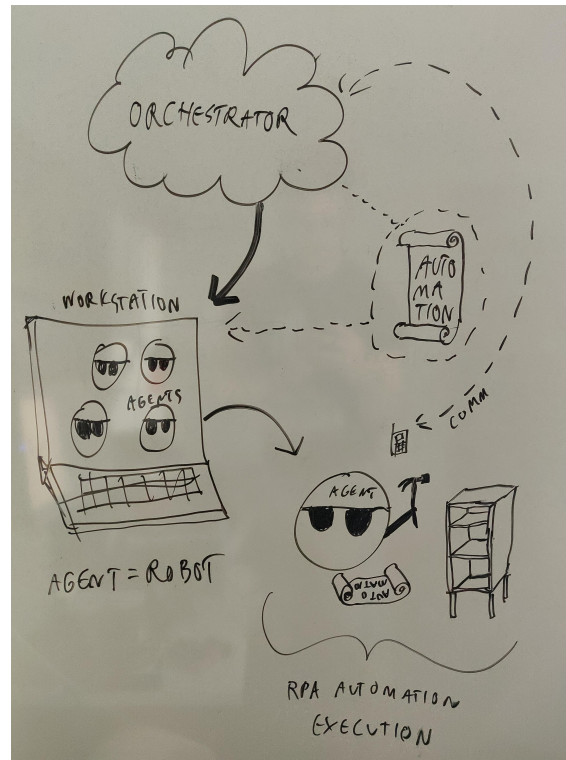 ORCHESTRATOR
AUTO
MA
TION
WORKSTATION
AGENTS
COMM
AGENT
AUTO
MATIO
AGENT = ROBOT
RPA AUTOMATION
EXECUTION